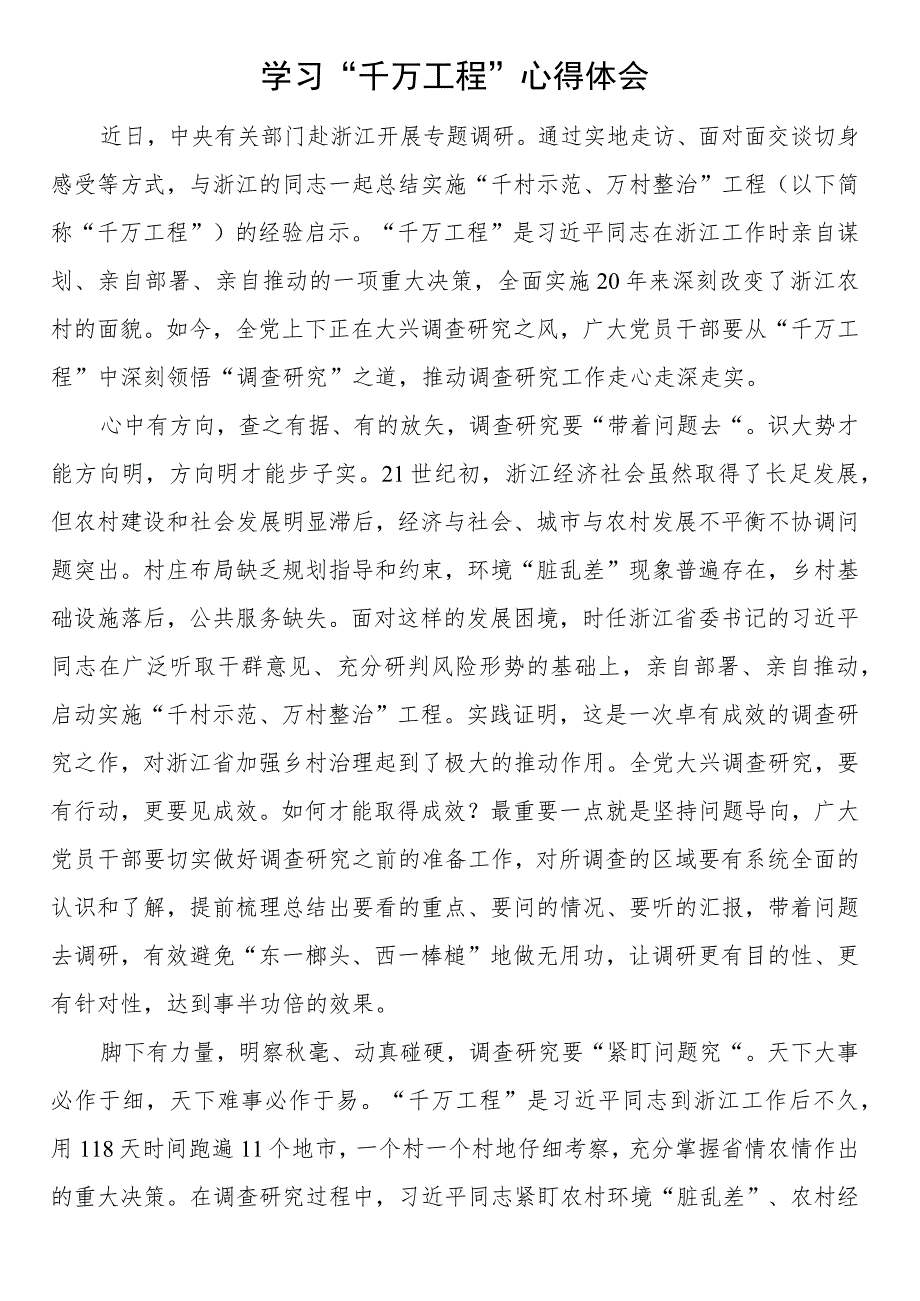 学习“千万工程”心得体会
近日，中央有关部门赴浙江开展专题调研。通过实地走访、面对面交谈切身
感受等方式，与浙江的同志一起总结实施“千村示范、万村整治”工程（以下简
称“千万工程”）的经验启示。“千万工程”是习近平同志在浙江工作时亲自谋
划、亲自部署、亲自推动的一项重大决策，全面实施20年来深刻改变了浙江农
村的面貌。如今，全党上下正在大兴调查研究之风，广大党员干部要从“千万工
程”中深刻领悟“调查研究”之道，推动调查研究工作走心走深走实。
心中有方向，查之有据、有的放矢，调查研究要“带着问题去“。识大势才
能方向明，方向明才能步子实。21世纪初，浙江经济社会虽然取得了长足发展，
但农村建设和社会发展明显滞后，经济与社会、城市与农村发展不平衡不协调问
题突出。村庄布局缺乏规划指导和约束，环境“脏乱差”现象普遍存在，乡村基
础设施落后，公共服务缺失。面对这样的发展困境，时任浙江省委书记的习近平
同志在广泛听取干群意见、充分研判风险形势的基础上，亲自部署、亲自推动，
启动实施“千村示范、万村整治”工程。实践证明，这是一次卓有成效的调查研
究之作，对浙江省加强乡村治理起到了极大的推动作用。全党大兴调查研究，要
有行动，更要见成效。如何才能取得成效？最重要一点就是坚持问题导向，广大
党员干部要切实做好调查研究之前的准备工作，对所调查的区域要有系统全面的
认识和了解，提前梳理总结出要看的重点、要问的情况、要听的汇报，带着问题
去调研，有效避免“东一榔头、西一棒槌”地做无用功，让调研更有目的性、更
有针对性，达到事半功倍的效果。
脚下有力量，明察秋毫、动真碰硬，调查研究要“紧盯问题究“。天下大事
必作于细，天下难事必作于易。“千万工程”是习近平同志到浙江工作后不久，
用118天时间跑遍11个地市，一个村一个村地仔细考察，充分掌握省情农情作出
的重大决策。在调查研究过程中，习近平同志紧盯农村环境“脏乱差”、农村经